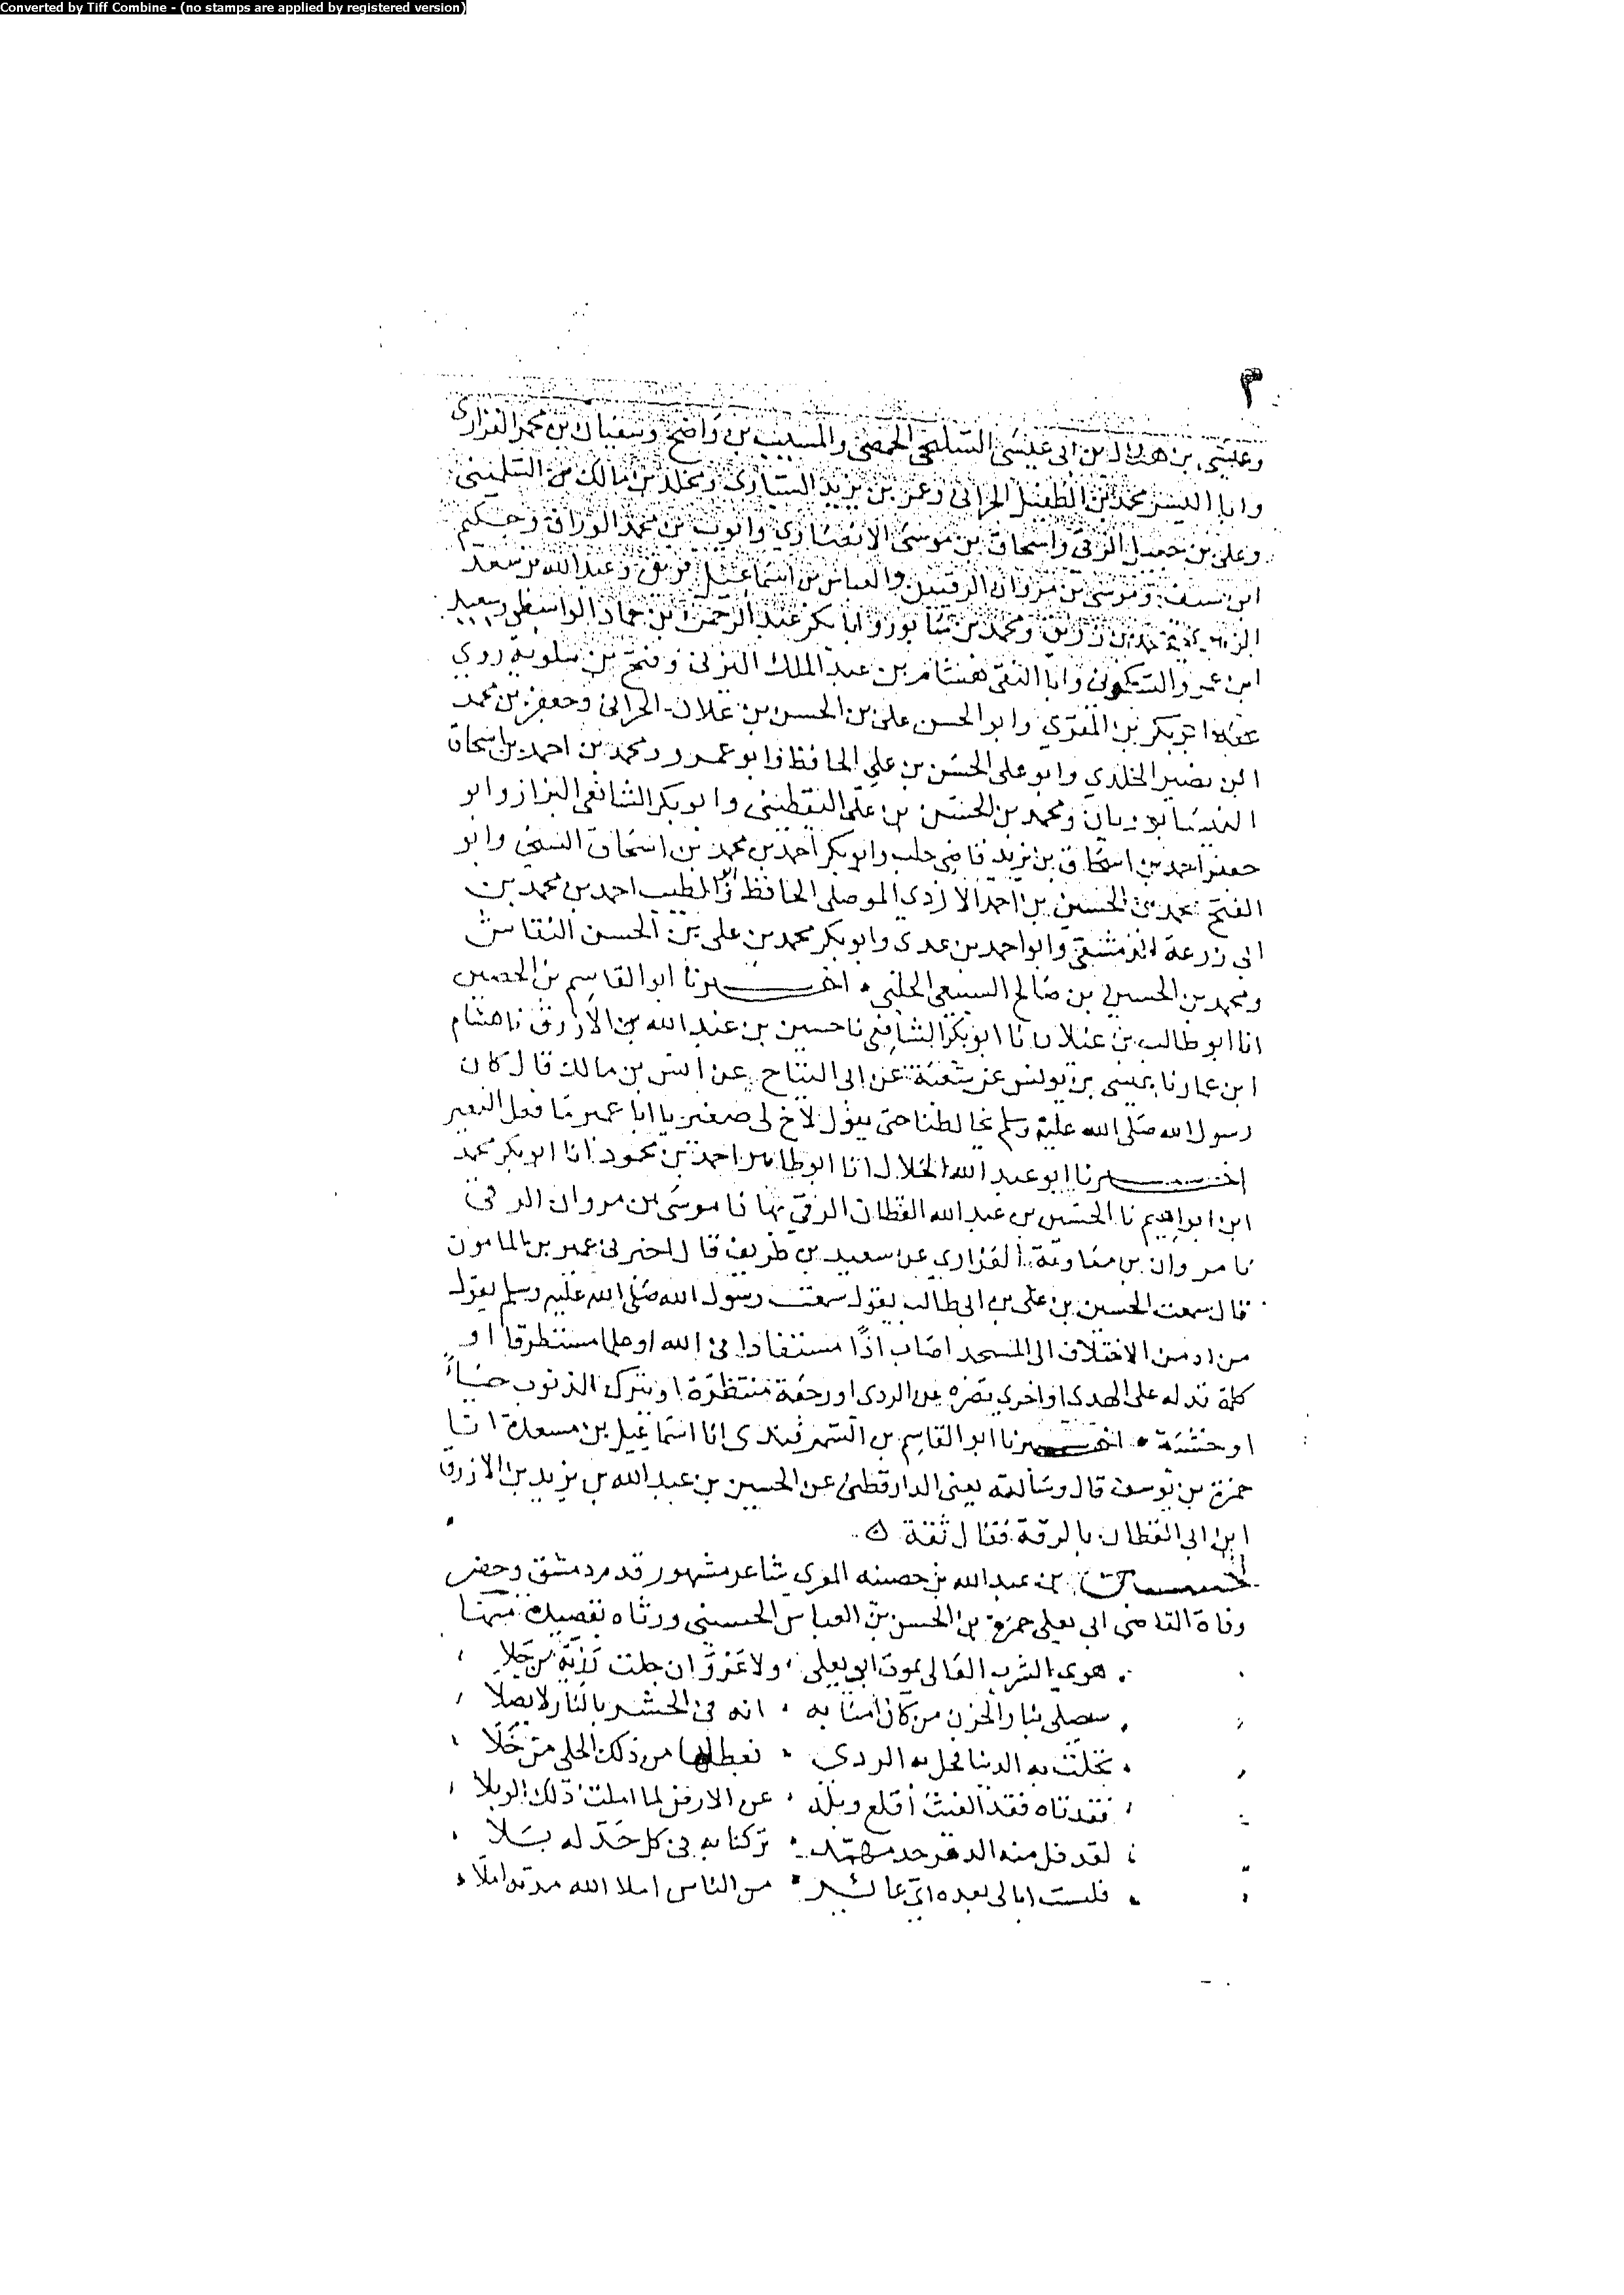 Converted by Tiff Combine - (no stamps are applied by registered version)
٣
وعيسى بن هلال بن ابى عيسى السليحى الحمصى والمسيب بن واضح وسفيان بن محمد الفزارى
وابا اليسر محمد بن الطفيل الحرانى وعمر بن يزيد السيارى ومخلد بن مالك السلمسينى
وعلى بن جميل الرقى واسحاق بن موسى الانصارى وايوب بن محمد الوزان وحكيم
ابن سيف وموسى بن مروان الرقيين والعباس بن اسماعيل وعبد الله بن سعد
بن زريق ومحمد بن سابور وابا بكر عبد الرحمن بن حماد الواسطى وسعيد
ابن عمرو السكونى وابا التقى هشام بن عبد الملك اليزنى وفتح بن سلوية روى
عنه ابو بكر بن المقرى وابو الحسن على بن الحسن بن علان الحرانى وجعفر بن محمد
ابن نصير الخلدي وابو على الحسين بن علي الحافظ وابو عمرو ومحمد بن احمد بن اسحاق
النيسابوريان ومحمد بن الحسين بن على اليقطينى وابو بكر الشافعى البزاز وابو
جعفر احمد بن اسحاق بن يزيد قاضى حلب وابو بكر احمد بن محمد بن اسحاق السنى وابو
الفتح محمد بن الحسين بن احمد الازدي الموصلى الحافظ وابو الطيب احمد بن محمد بن
ابى زرعة الدمشقى وابو احمد بن عدى وابو بكر محمد بن على بن الحسن النقاش
ومحمد بن الحسين بن صالح السبيعى الحلبى ٠ اخبرنا ابو القاسم بن الحصين
انا ابو طالب بن غيلان نا ابو بكر الشافعى نا حسين بن عبد الله بن الازرق نا هشام
ابن عمار نا عيسى بن يونس عن شعبة عن ابى التياح عن انس بن مالك قال كان
رسول الله صلى الله عليه وسلم يخالطنا حتى يقول لاخ لى صغير يا ابا عمير ما فعل النغير
اخبرنا ابو عبد الله الخلال انا ابو طاهر احمد بن محمود انا ابو بكر محمد
ابن ابراهيم نا الحسين بن عبد الله القطان الرقى بها نا موسى بن مروان الرقى
نا مروان بن معاوية الفزاري عن سعيد بن طريف قال اخبرنى عمير بن المامون
قال سمعت الحسين بن على بن ابى طالب يقول سمعت رسول الله صلى الله عليه وسلم يقول
من ادمن الاختلاف الى المسجد اصاب اخًا مستفادا فى الله او علما مستطرفا او
كلمة تدله على الهدى او اخرى تصرفه عن الردى او رحمة منتظرة او يترك الذنوب حياءً
او خشية ٠ اخبرنا ابو القاسم بن السمرقندى انا اسماعيل بن مسعدة انا
حمزة بن يوسف قال وسالته يعنى الدارقطنى عن الحسين بن عبد الله بن يزيد بن الازرق
ابن ابى القطان بالرقة فقال ثقة ه
الحسين بن عبد الله بن حصينه المعرى شاعر مشهور قدم دمشق وحضر
وفاة القاضى ابى يعلى حمزة بن الحسن بن العباس الحسينى ورثاه بقصيدة منها
هوى الشرف العالى بموت ابى يعلى ، ولا غرو ان جلت رزية من جلا
سيصلى بنار الحزن من كان امنا به ، انه فى الحشر بالنار لا يصلا
تحلت به الدنيا فحل به الردى ، فعطلها من ذلك الحلى من حلا
فقدناه فقد الغيث اقلع وبله ، عن الارض لما املت ذلك الوبلا
لقد فل منه الدهر حد مهند ، تركنا به فى كل حد له بسلا
فلست ابالى بعده اى عاثر ، من الناس املا الله مدته املا